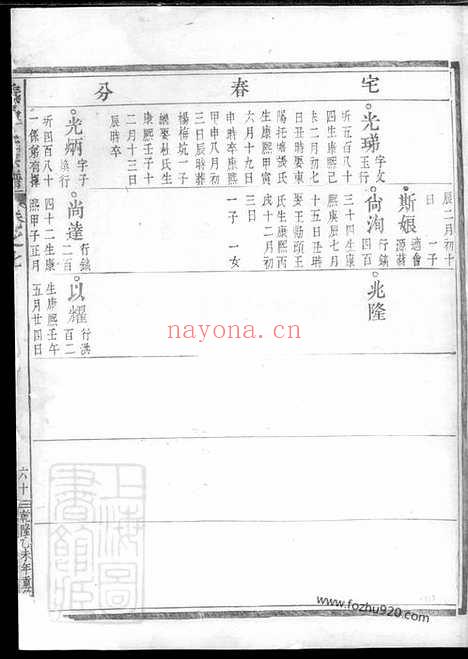 宅春分
光瑅 字文玉行
昕五百八十
四生康熙己
未二月初七
日丑時娶東
陽托塘張氏
生康熙甲寅
六月十九日
申時卒康熙
甲申八月初
三日辰時葬
楊梅坑一子
繼娶杜氏生
康熙壬子十
二月十三日
辰時卒
光炳 字子煥行
昕四百八十
一係弟
辰二月初
日 一子
斯娘 適會源蔡
尙洵 行鎮四百
三十四生康
熙庚辰七月
十五日丑時
娶王勛頭王
氏生康熙丙
戌十二月初
三日
一子 一女
尚達 行鎮二百
四十二生康
熙甲子正月
兆隆
以耀 行洪百二
生康熙壬午
五月廿四日
六十
乾隆乙未年重
上海圖書館藏
nayona.cn
www.fozhu920.com